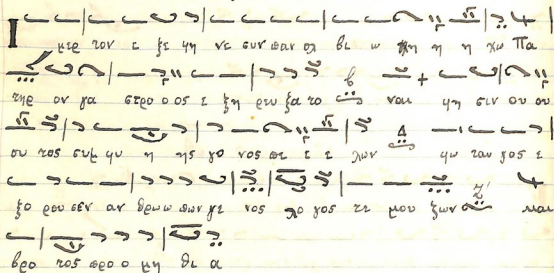 Ι μερ τον ε ξε φη νε συν παν ολ βι ω η η η χω Πα
τηρ ον γα στρο ο ος ε ξη ρευ ξα το ναι φη σιν ου ου
ου τος συμ φυ η ης γο νος πε ε ε λων φω ταυ γος ε
ξο ρου σεν αν θρω ω πων γε νος λο γος τε μου ζων και
βρο τος προ ο μη θι α